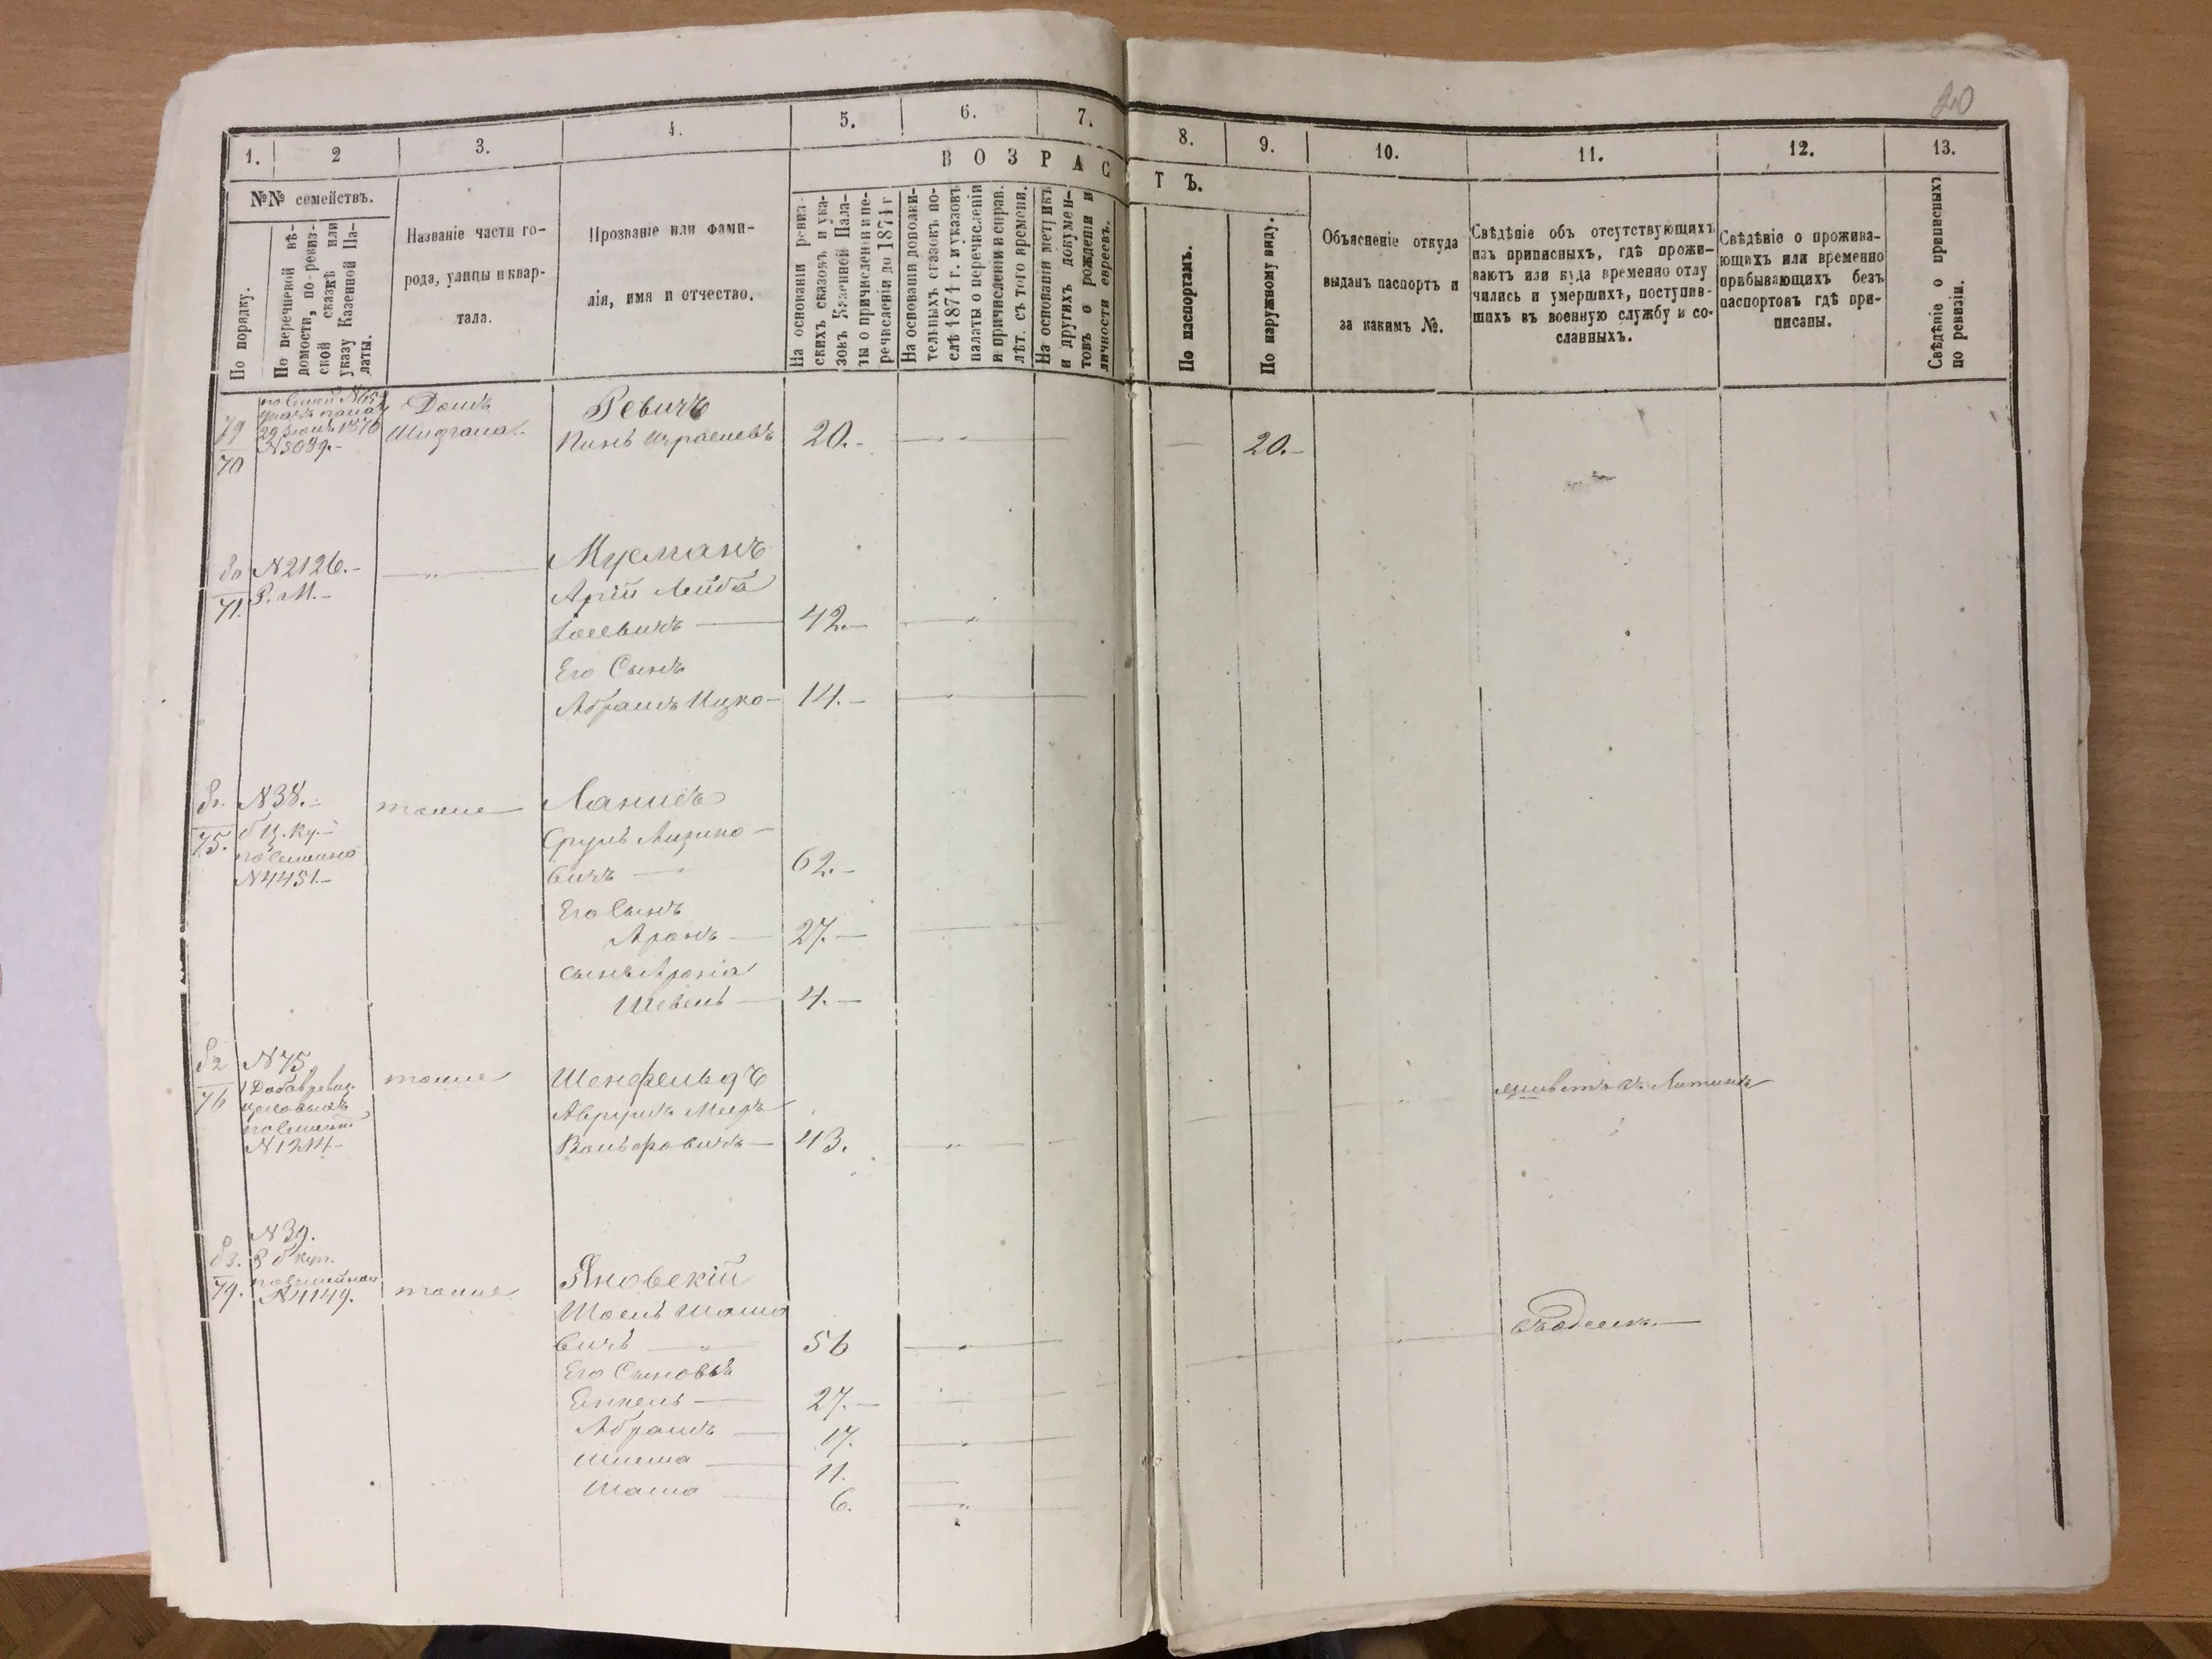 20
1.
2
3.
4.
5.
6.
7.
8.
9.
10.
11.
12.
13.
ВОЗРАС
ТЪ.
№№ семействъ.
По порядку.
По перечневой вѣ-
домости, по ревиз-
ской сказкѣ или
указу Казенной Па-
латы.
Названіе части го-
рода, улицы и квар-
тала.
Прозваніе или фами-
лія, имя и отчество.
На основаніи ревиз-
скихъ сказокъ и ука-
зовъ Казенной Пала-
ты о причисленіи и пе-
речисленіи до 1874 г
На основаніи дополни-
тельныхъ сказокъ по-
слѣ 1874 г. и указовъ
палаты о перечисленіи
и причисленіи и справ.
лѣт. съ того времени.
На основаніи метрикъ
и другихъ докумен-
товъ о рожденіи и
личности евреевъ.
По паспортамъ.
По наружному виду.
Объясненіе откуда
выданъ паспортъ и
за какимъ №.
Свѣдѣніе объ отсутствующихъ
изъ приписныхъ, гдѣ прожи-
ваютъ или куда временно отлу
чились и умершихъ, поступив-
шихъ въ военную службу и со-
сланныхъ.
Свѣдѣніе о прожива-
ющихъ или временно
прибывающихъ безъ
паспортовъ гдѣ при-
писаны.
Свѣдѣніе о приписныхъ
по ревизіи.
79
70
29 1876
№ 5089.-
Домъ
Ревичъ
Пинь Израелевъ 20.- 20.-
80 №2126.-
71. Р. М.-
Мусманъ
Арій Лейба
Іосевичъ 42.-
Его Сынъ
Абрамъ Ицко- 14.-
81. №38.-
75.
№4451.-
тоже
Ланисъ
Сруль
вичъ 62.-
Его Сынъ
Аронъ 27.-
сынъ Арона
Шевель 4.-
82 №75
76
№1214-
тоже
Шенфельдъ
Аврумъ Мееръ
Вольфовичъ- 43.
83. №39.
79. №4149.
тоже
Яновскій
Шоель Шаша
вичъ 56
Его Сыновья
Енкель 27.-
Абрамъ 17.
11.
Шаша 6.